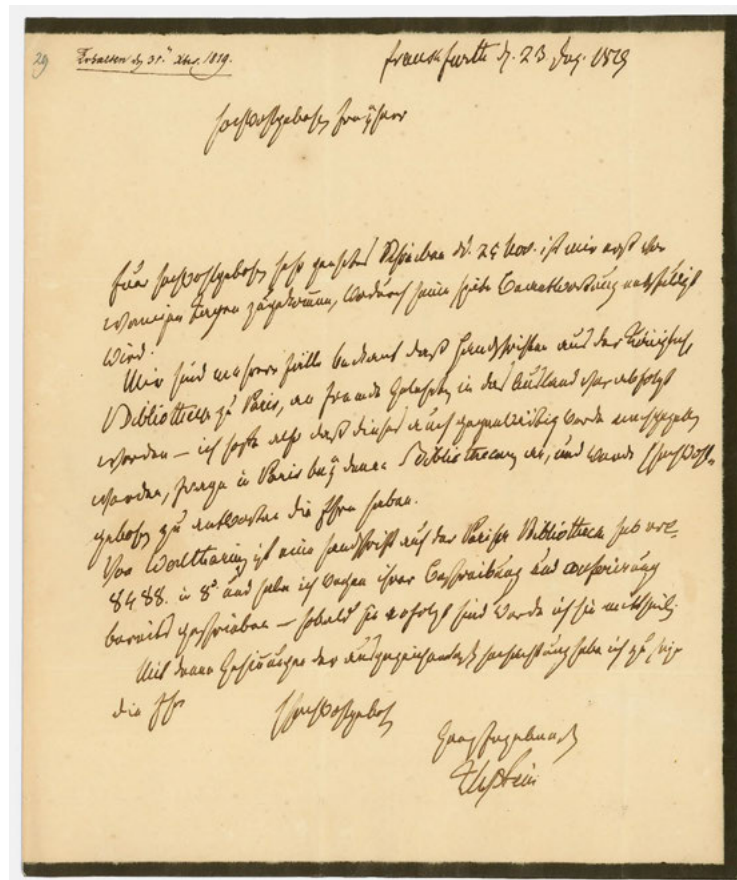 29
Erhalten den 31ⁿ Xber. 1819.
Frankfurth d. 23 Dez. 1819
Hochwohlgebohrner Freyherr
Euer Hochwohlgebohren sehr geehrtes Schreiben dd. 25 Nov. ist mir erst vor
wenigen Tagen zugekommen, wodurch seine späte Beantwortung entschuldigt
wird.
Mir sind mehrere Fälle bekant daß Handschriften aus der Königlichen
Bibliotheck zu Paris, an fremde Gelehrte in das Ausland verabfolgt
worden — ich hoffe also daß dieses auch gegenseitig werde
werden, frage in Paris bey denen Bibliothecaren an, und werde Euer Hochwohl-
gebohren zu antworten die Ehre haben.
Von Waltharius ist eine Handschrift auf der Pariser Bibliotheck sub
8488. in 8° und habe ich wegen ihrer Beschreibung und
bereits geschrieben — sobald sie erfolgt sind werde ich sie mittheilen
Mit denen Gesinnungen der ausgezeichnetesten Hochachtung habe ich zu seyn
die Ehre Euer Hochwohlgebohren
Ganz Ergebenster
KvStein